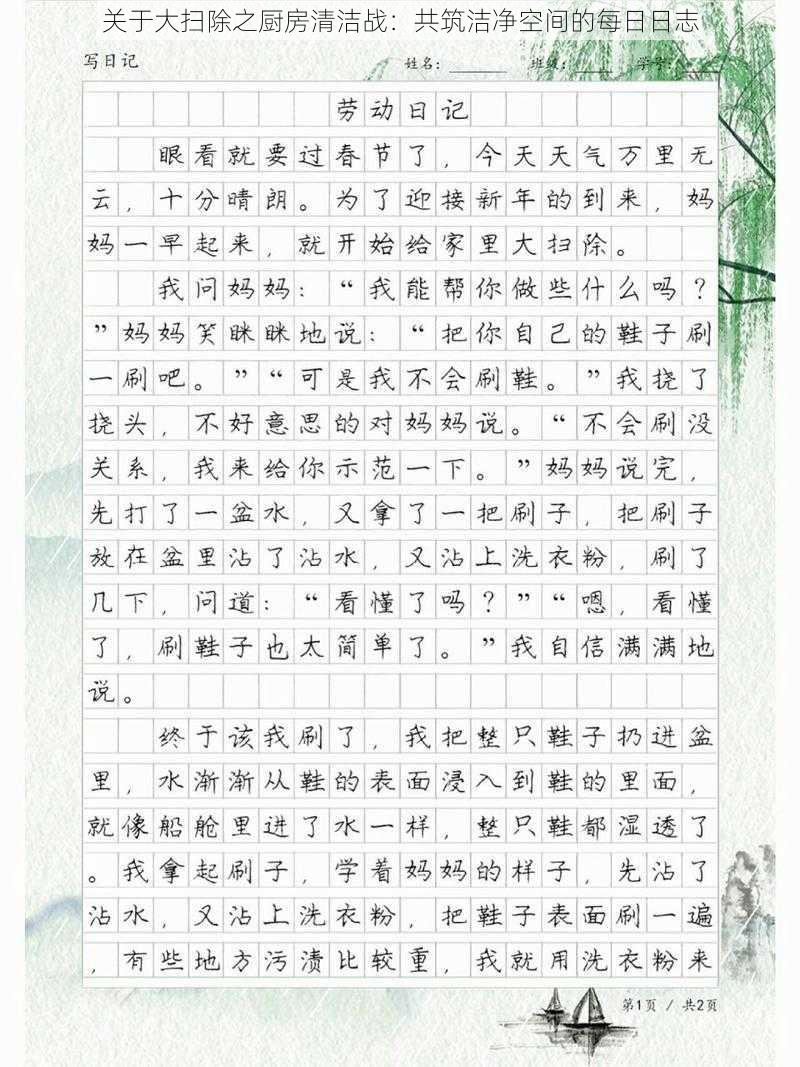 关于大扫除之厨房清洁战：共筑洁净空间的每日日志
写日记 姓名：______ 班级：____ 学号：____
劳动日记
眼看就要过春节了，今天天气万里无
云，十分晴朗。为了迎接新年的到来，妈
妈一早起来，就开始给家里大扫除。
我问妈妈：“我能帮你做些什么吗？
”妈妈笑眯眯地说：“把你自己的鞋子刷
一刷吧。”“可是我不会刷鞋。”我挠了
挠头，不好意思的对妈妈说。“不会刷没
关系，我来给你示范一下。”妈妈说完，
先打了一盆水，又拿了一把刷子，把刷子
放在盆里沾了沾水，又沾上洗衣粉，刷了
几下，问道：“看懂了吗？”“嗯，看懂
了，刷鞋子也太简单了。”我自信满满地
说。
终于该我刷了，我把整只鞋子扔进盆
里，水渐渐从鞋的表面浸入到鞋的里面，
就像船舱里进了水一样，整只鞋都湿透了
。我拿起刷子，学着妈妈的样子，先沾了
沾水，又沾上洗衣粉，把鞋子表面刷一遍
，有些地方污渍比较重，我就用洗衣粉来
第1页 / 共2页